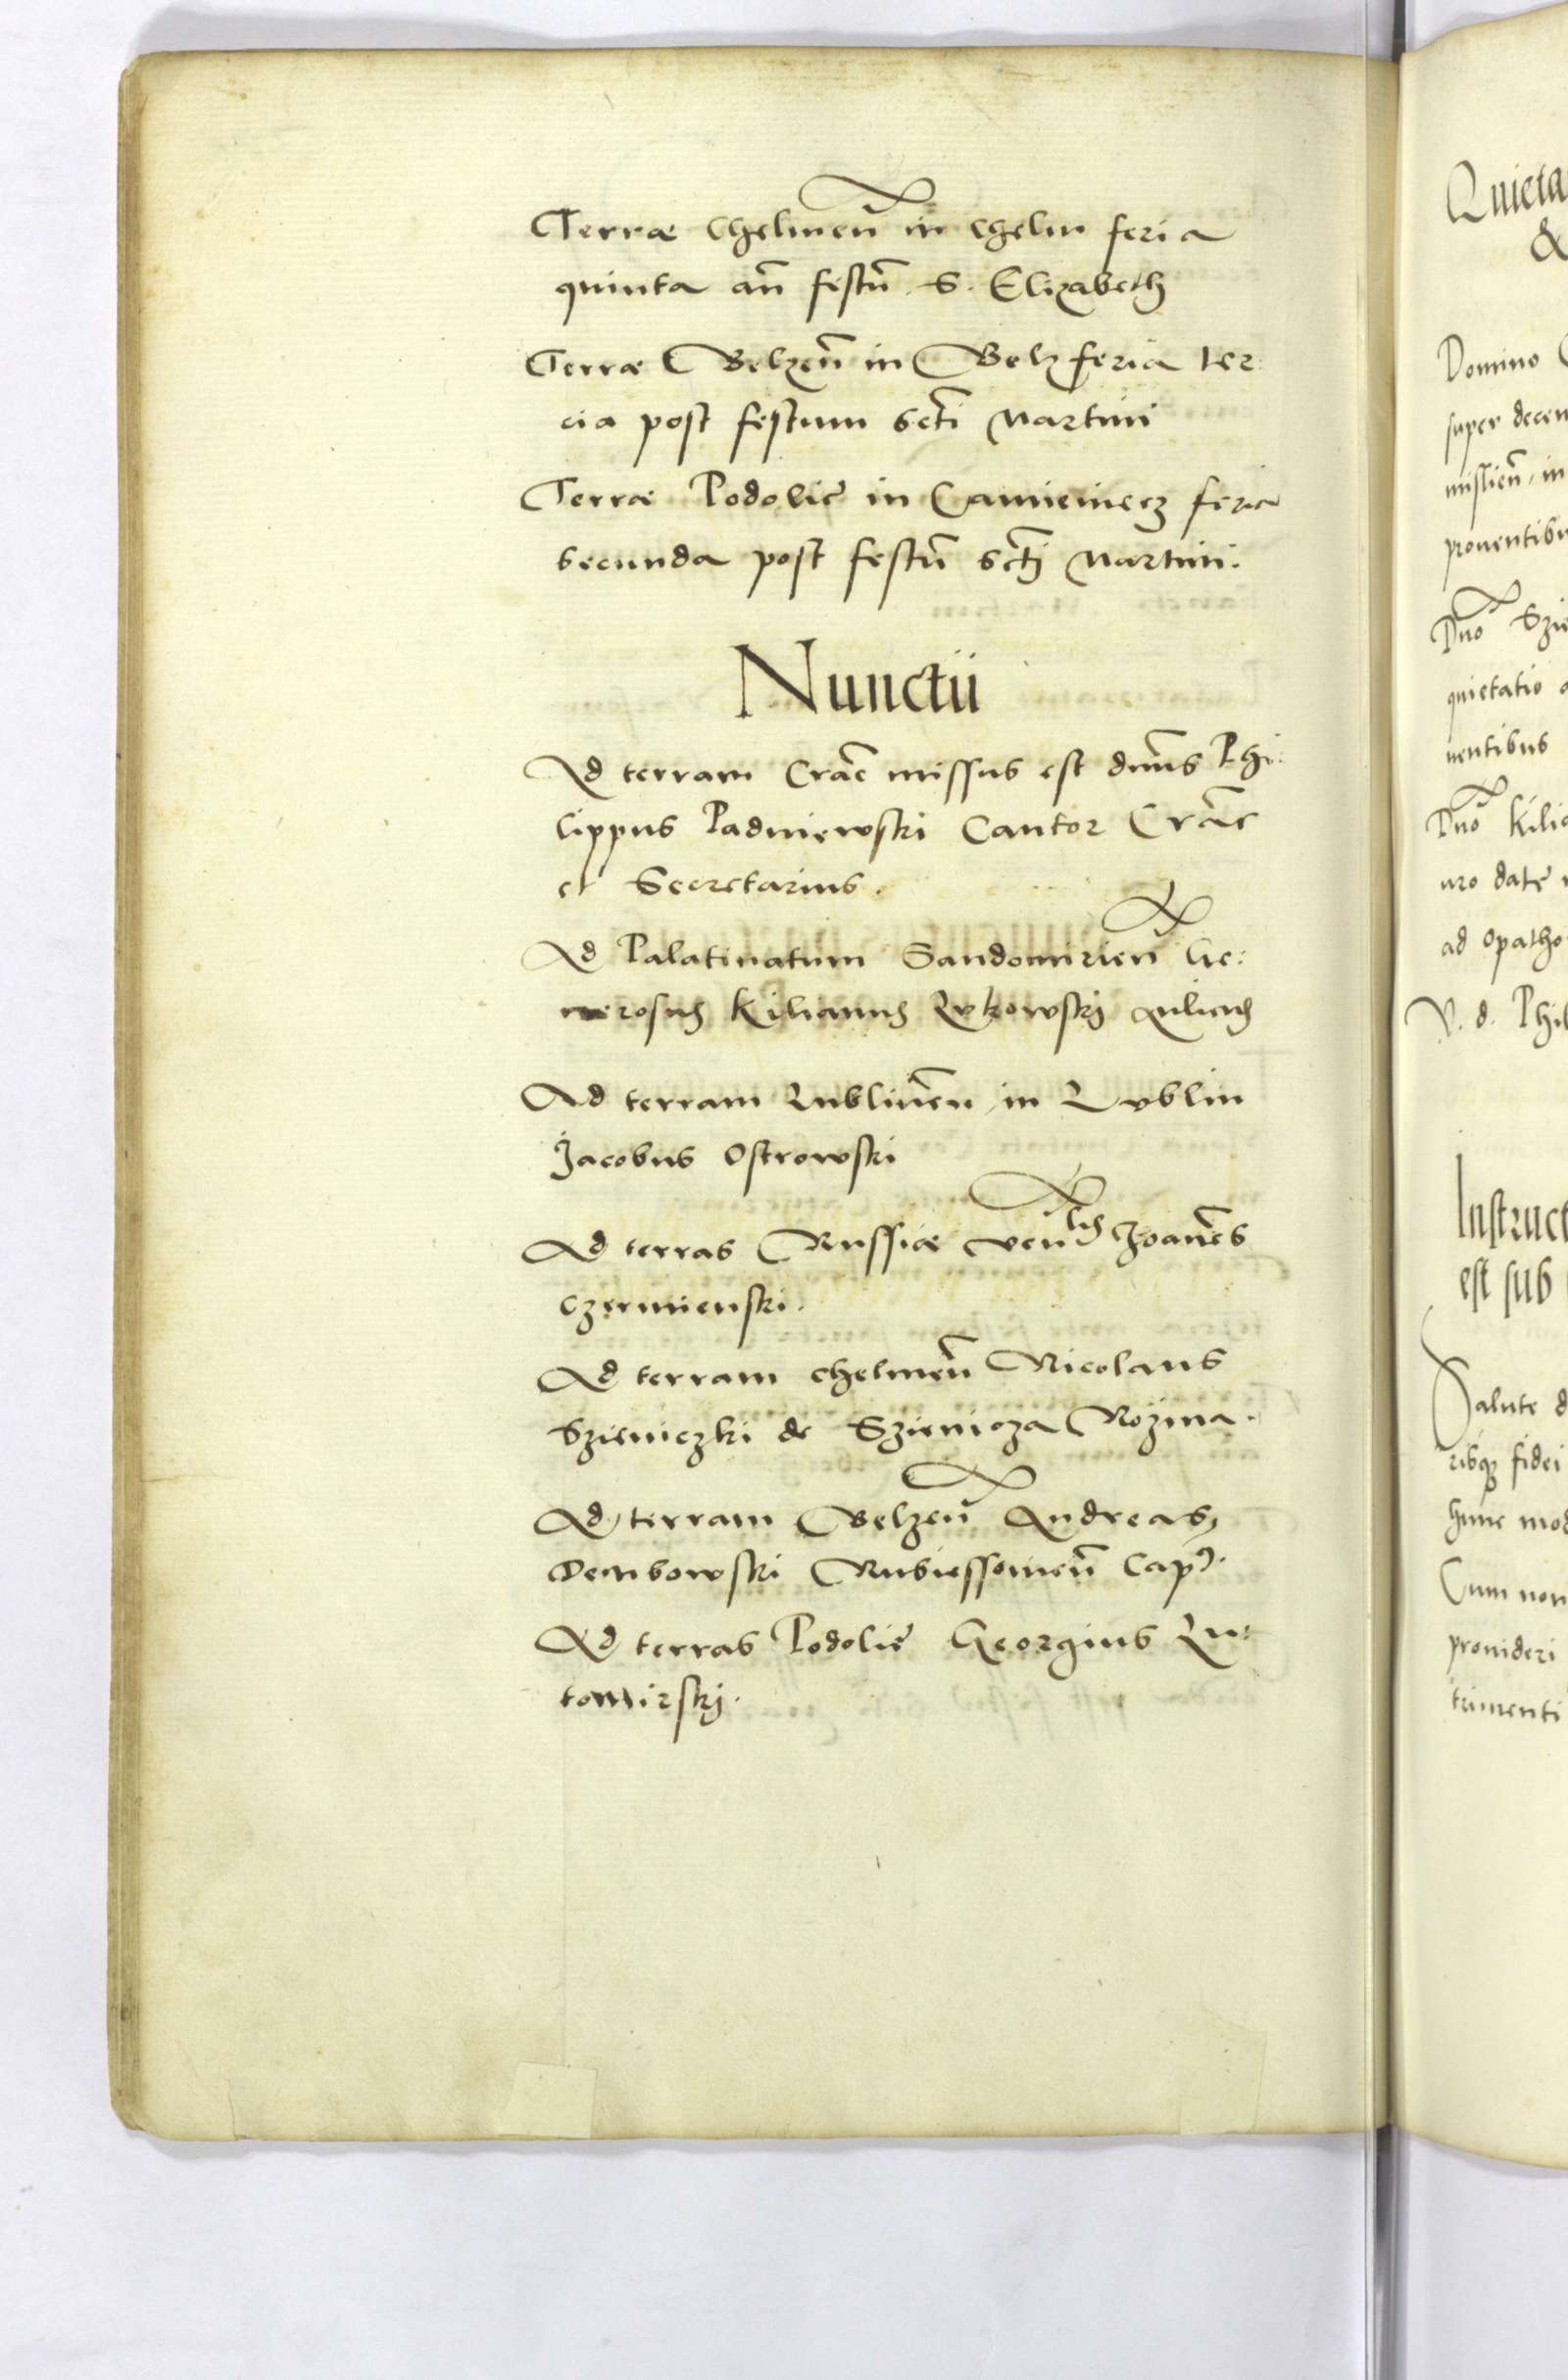 Terræ Chelmen̄ in Chelm feria
quinta an̄ festū S. Elizabeth
Terræ Belzen̄ in Belz feria ter:
cia post festum Sc̄ti Martini
Terræ Podolię in Camieniecz feria
secunda post festū Sc̄tj Martini.
Nunctii
Ad terram Crac̄ missus est dn̄us Phi:
lippus Padniewski Cantor Crac̄
et Secretarius.
Ad Palatinatum Sandomirien̄ Ge:
nerosus Kilianus Lykowskj
Ad terram Lublinen̄ in Lublin
Jacobus Ostrowski
Ad terras Russiæ ven̄lis Joannēs
Czermienski.
Ad terram chelmen̄ Nicolaus
Szieniczki de Szienicza Rozina.
Ad terram Belzen̄ Andreas
Dembowski Rubiessoinen̄ Cap.
Ad terras Podolię Georgius Lu:
tomirskj.
Quieta
&
Domino
super decem
mislien̄, in
prouentibu
Dn̄o Szie
quietatio a
uentibus
Dn̄o Kilia
uro datę
ad Opatho
V. d. Phil
Instruct
est sub
Salute d
ribq₃ fidei
hunc mod
Cum non
prouideri
trimenti